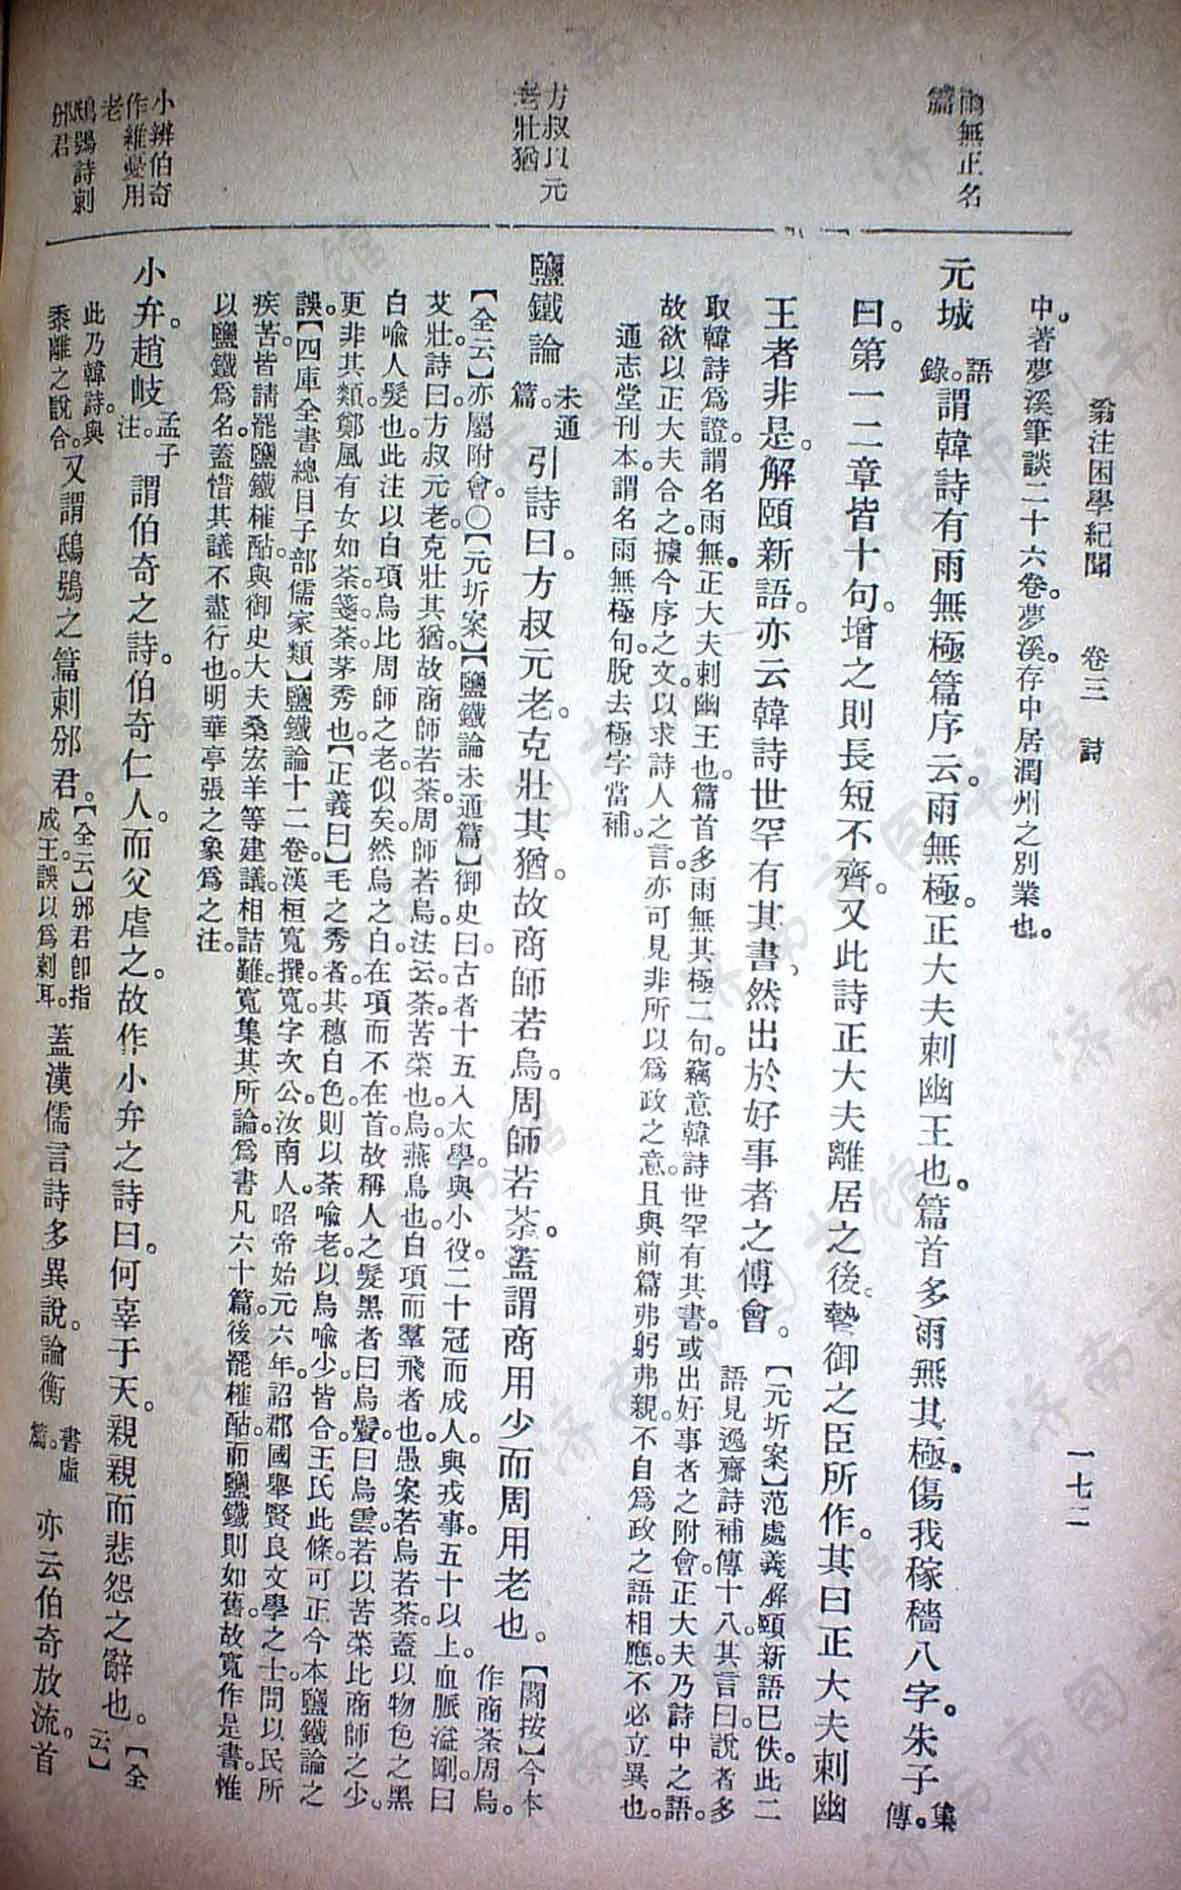 翁注困學紀聞　卷三　詩　一七二
雨無正名
篇
方叔以元
老壯猶
小辨伯奇
作離憂用
老
鴟鴞詩刺
邠君
中。著夢溪筆談二十六卷。夢溪。存中居潤州之別業也。
元城語錄。謂韓詩有雨無極篇序云。雨無極。正大夫刺幽王也。篇首多雨無其極。傷我稼穡八字。朱子集傳。
曰。第一二章皆十句。增之則長短不齊。又此詩正大夫離居之後。暬御之臣所作。其曰正大夫刺幽
王者非是。解頤新語。亦云韓詩世罕有其書、然出於好事者之傅會。【元圻案】范處義解頤新語已佚。此二語見逸齋詩補傳十八。其言曰。說者多
取韓詩爲證。謂名雨無。正大夫刺幽王也。篇首多雨無其極二句。竊意韓詩世罕有其書。或出好事者之附會。正大夫乃詩中之語。
故欲以正大夫合之。據今序之文。以求詩人之言。亦可見非所以爲政之意。且與前篇弗躬弗親。不自爲政之語相應。不必立異也。
通志堂刊本。謂名雨無極句。脫去極字當補。
鹽鐵論未通篇。引詩曰。方叔元老。克壯其猶。故商師若烏。周師若荼。蓋謂商用少而周用老也。【閻按】今本作商荼周烏。
【全云】亦屬附會。〇【元圻案】【鹽鐵論未通篇】御史曰。古者十五入大學。與小役。二十冠而成人。與戎事。五十以上。血脈溢剛。曰
艾壯。詩曰。方叔元老。克壯其猶。故商師若荼。周師若烏。注云。荼苦菜也。烏燕烏也。白項而羣飛者也。愚案若烏若荼。蓋以物色之黑
白喻人髮也。此注以白項烏比周師之老。似矣。然烏之白。在項而不在首。故稱人之髮黑者曰烏鬢。曰烏雲。若以苦菜比商師之少。
更非其類。鄭風有女如荼。箋。荼。茅秀也。【正義曰】毛之秀者。其穗白色。則以荼喻老。以烏喻少。皆合。王氏此條。可正今本鹽鐵論之
誤。【四庫全書總目子部儒家類】鹽鐵論十二卷。漢桓寬撰。寬字次公。汝南人。昭帝始元六年。詔郡國舉賢良文學之士。問以民所
疾苦。皆請罷鹽鐵榷酤。與御史大夫桑宏羊等建議。相詰難。寬集其所論。爲書凡六十篇。後罷榷酤。而鹽鐵則如舊。故寬作是書。惟
以鹽鐵爲名。蓋惜其議不盡行也。明華亭張之象爲之注。
小弁。趙岐孟子注。謂伯奇之詩。伯奇仁人。而父虐之。故作小弁之詩曰。何辜于天。親親而悲怨之辭也。【全云】
此乃韓詩。與黍離之說合。又謂鴟鴞之篇刺邠君。【全云】邠君卽指成王。誤以爲刺耳。蓋漢儒言詩多異說。論衡書虛篇。亦云伯奇放流。首